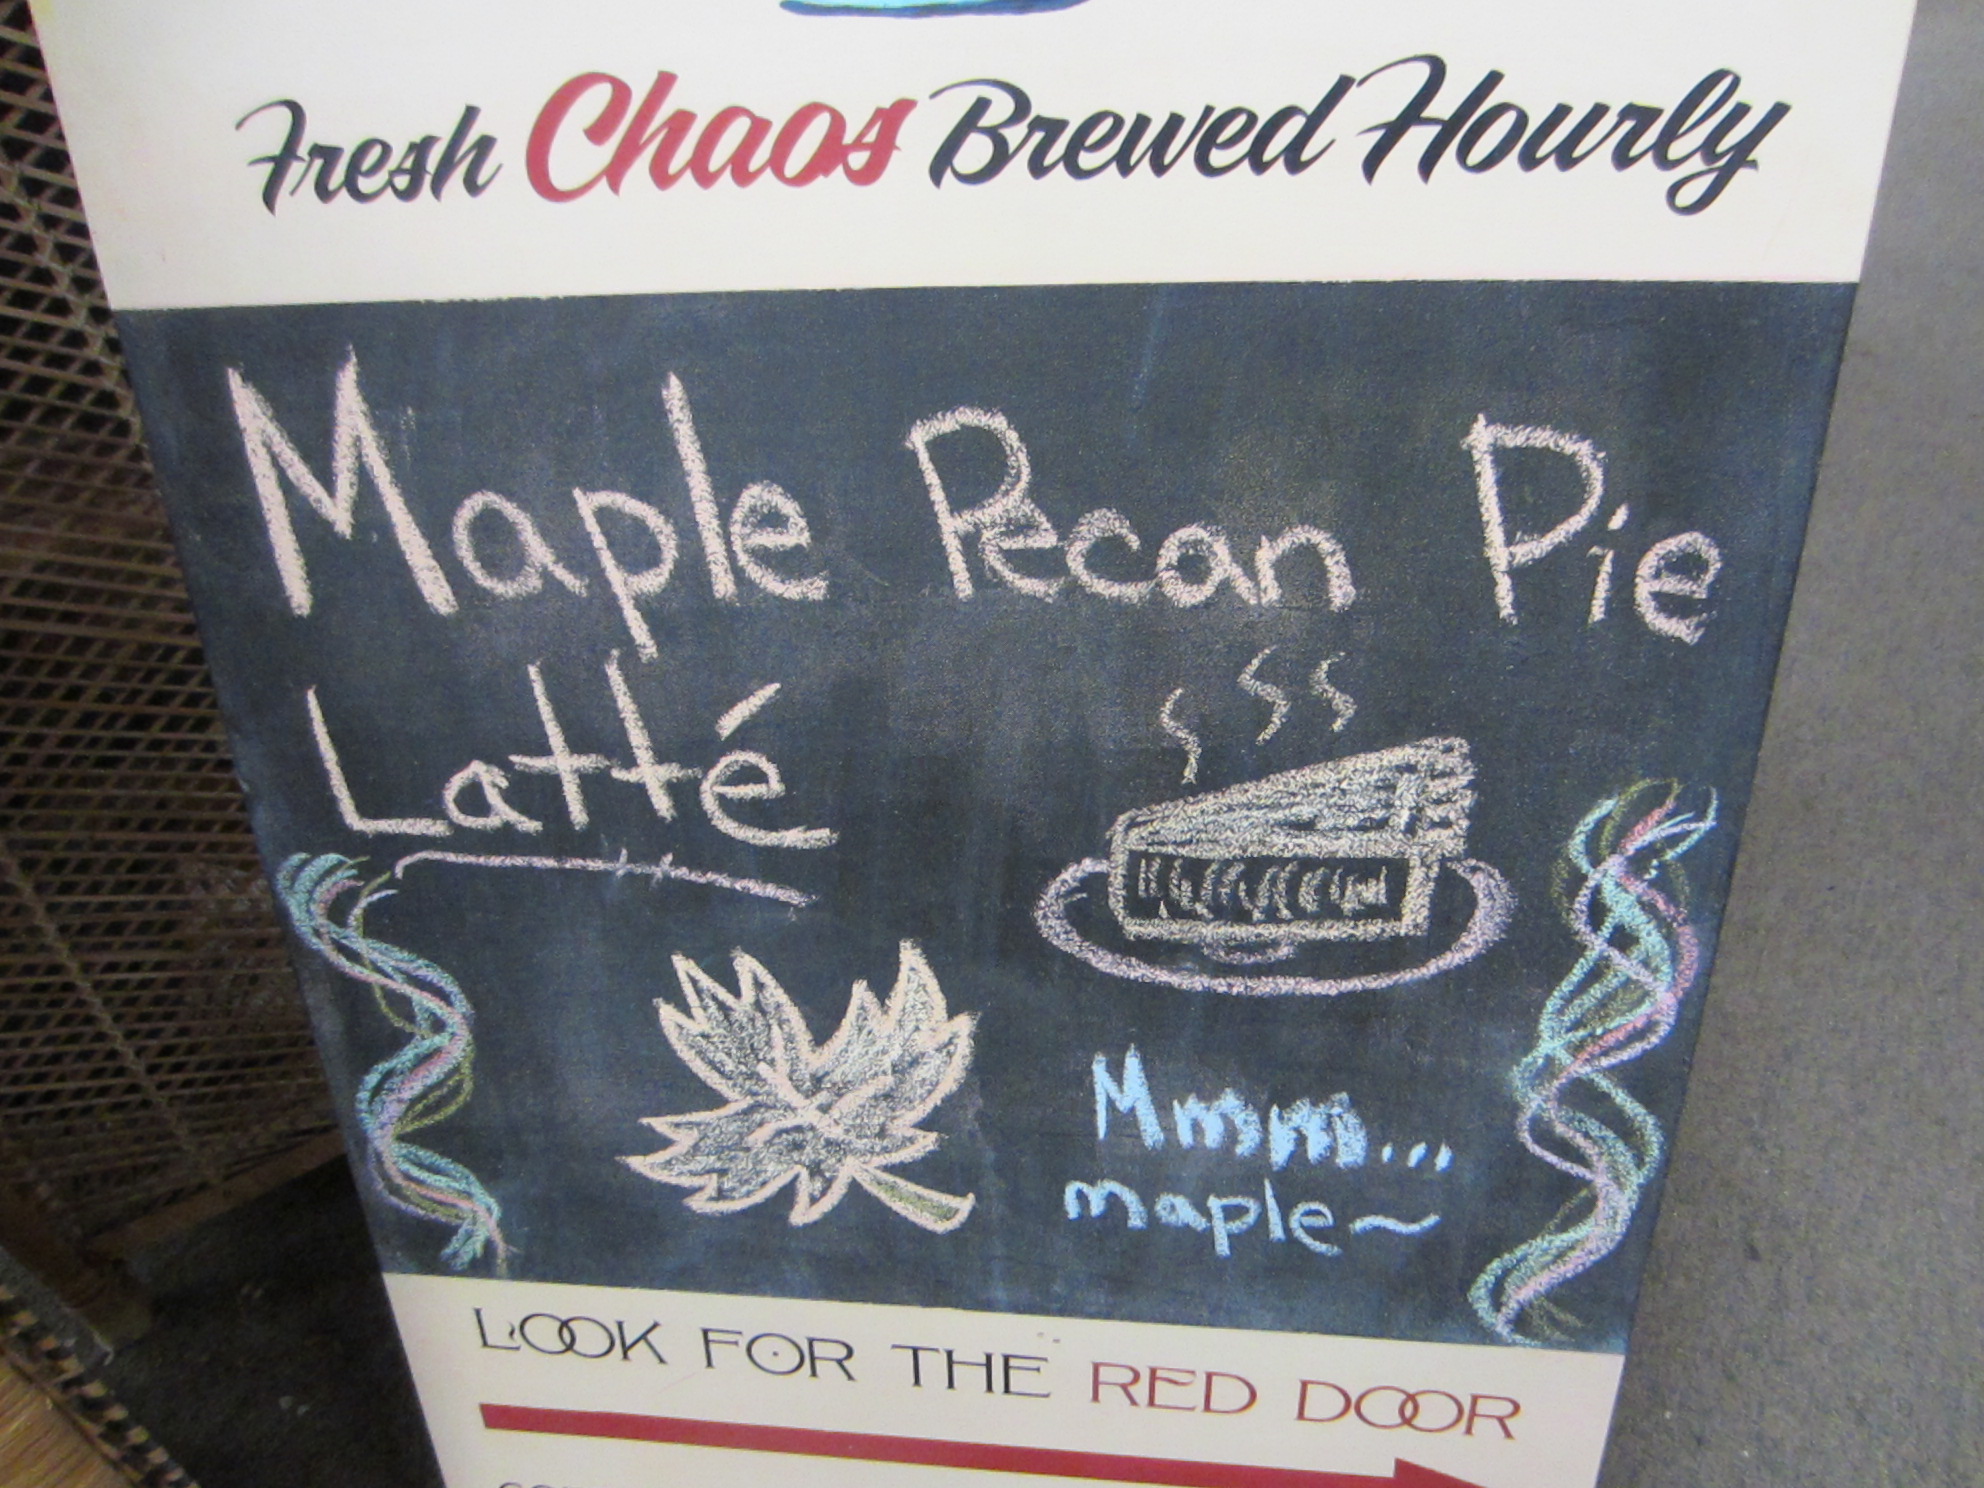 Fresh Chaos Brewed Hourly
Maple Pecan Pie
Latté
Mmmm...
maple~
LOOK FOR THE RED DOOR